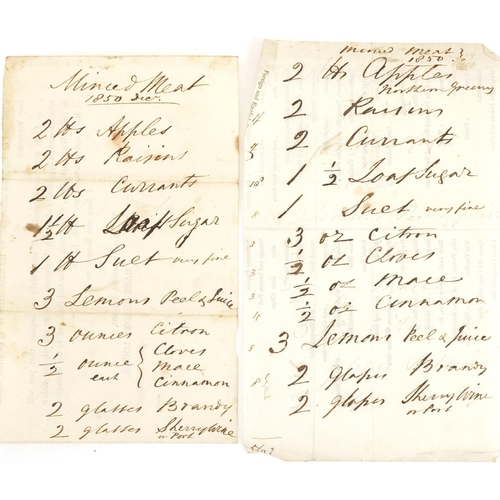 Minced Meat
1850 Decr.
2 lbs Apples
2 lbs Raisins
2 lbs Currants
1 1/2 lb Loaf Sugar
1 lb Suet very fine
3 Lemons Peel & Juice
3 ounces Citron
1/2 ounce each { Cloves
Mace
Cinnamon
2 glasses Brandy
2 glasses Sherry Wine
or Port
Minced Meat
1850
2 lbs Apples
Northern Greens
2 Raisins
2 Currants
1 1/2 Loaf Sugar
1 Suet very fine
3 oz Citron
1/2 oz Cloves
1/2 oz Mace
1/2 oz Cinnamon
3 Lemons Peel & Juice
2 glasses Brandy
2 glasses Sherry Wine
or Port